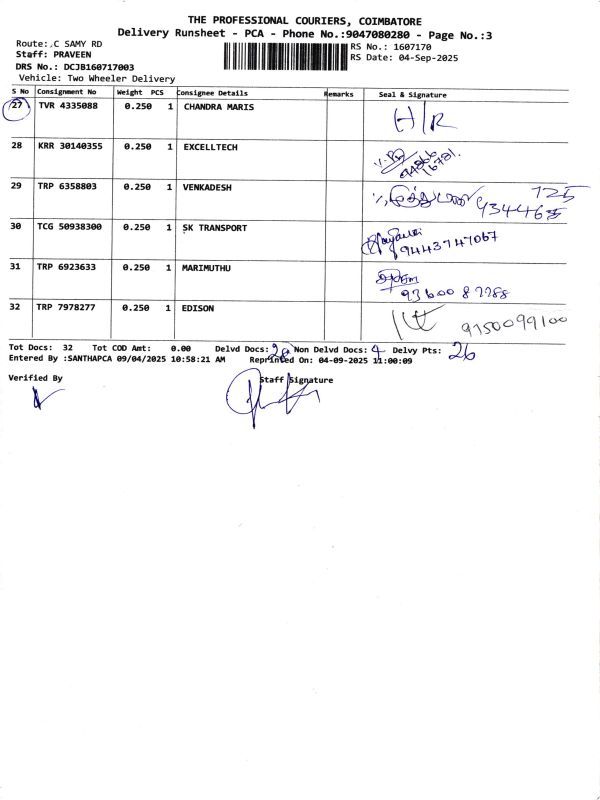 THE PROFESSIONAL COURIERS, COIMBATORE
Delivery Runsheet - PCA - Phone No.:9047080280 - Page No.:3
Route: C SAMY RD
RS No.: 1607170
Staff: PRAVEEN
RS Date: 04-Sep-2025
DRS No.: DCJB160717003
Vehicle: Two Wheeler Delivery
S No Consignment No Weight PCS Consignee Details Remarks Seal & Signature
27 TVR 4335088 0.250 1 CHANDRA MARIS H/R
28 KRR 30140355 0.250 1 EXCELLTECH
29 TRP 6358803 0.250 1 VENKADESH
30 TCG 50938300 0.250 1 SK TRANSPORT 9443747067
31 TRP 6923633 0.250 1 MARIMUTHU
32 TRP 7978277 0.250 1 EDISON 9750099100
Tot Docs: 32 Tot COD Amt: 0.00 Delvd Docs: 28 Non Delvd Docs: 4 Delvy Pts: 26
Entered By :SANTHAPCA 09/04/2025 10:58:21 AM Reprinted On: 04-09-2025 11:00:09
Verified By Staff Signature